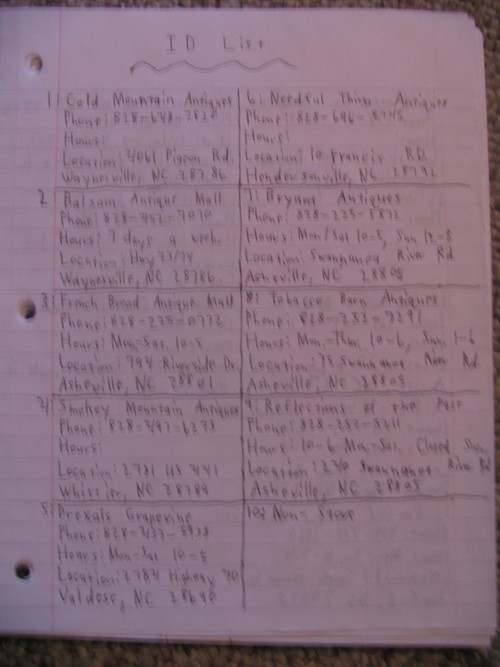 ID List
1: Cold Mountain Antiques
Phone: 828-648-
Hours:
Location: 4061 Pigeon Rd.
Waynesville, NC 28786
2 Balsam Antique Mall
Phone: 828-452-7070
Hours: 7 days a week
Location: Hwy 23/74
Waynesville, NC 28786
3: French Broad Antique Mall
Phone: 828-225-0772
Hours: Mon-Sat. 10-5
Location: 744 Riverside Dr.
Asheville, NC 28801
4: Smokey Mountain Antiques
Phone: 828-497-6293
Hours:
Location: 2781 US 441
Whittier, NC 28789
5: Grapevine
Phone: 828-437-
Hours: Mon-Sat 10-5
Location: 2784 Highway 70
Valdese, NC 28690
6: Needful Things Antiques
Phone: 828-696-8745
Hours:
Location: 10 Francis RD.
Hendersonville, NC 28792
7: Bryant Antiques
Phone: 828-225-5872
Hours: Mon/Sat 10-5, Sun 12-5
Location: Swannanoa River Rd
Asheville, NC
8: Tobacco Barn Antiques
Phone: 828-252-7291
Hours: Mon.-Thu. 10-6, Sun. 1-6
Location: 75 Swannanoa River Rd.
Asheville, NC 28805
9: Reflections of the Past
Phone: 828-252-5211
Hours: 10-6 Mon-Sat. Closed Sun.
Location: 270 Swannanoa River Rd
Asheville, NC 28805
10: Non- Store